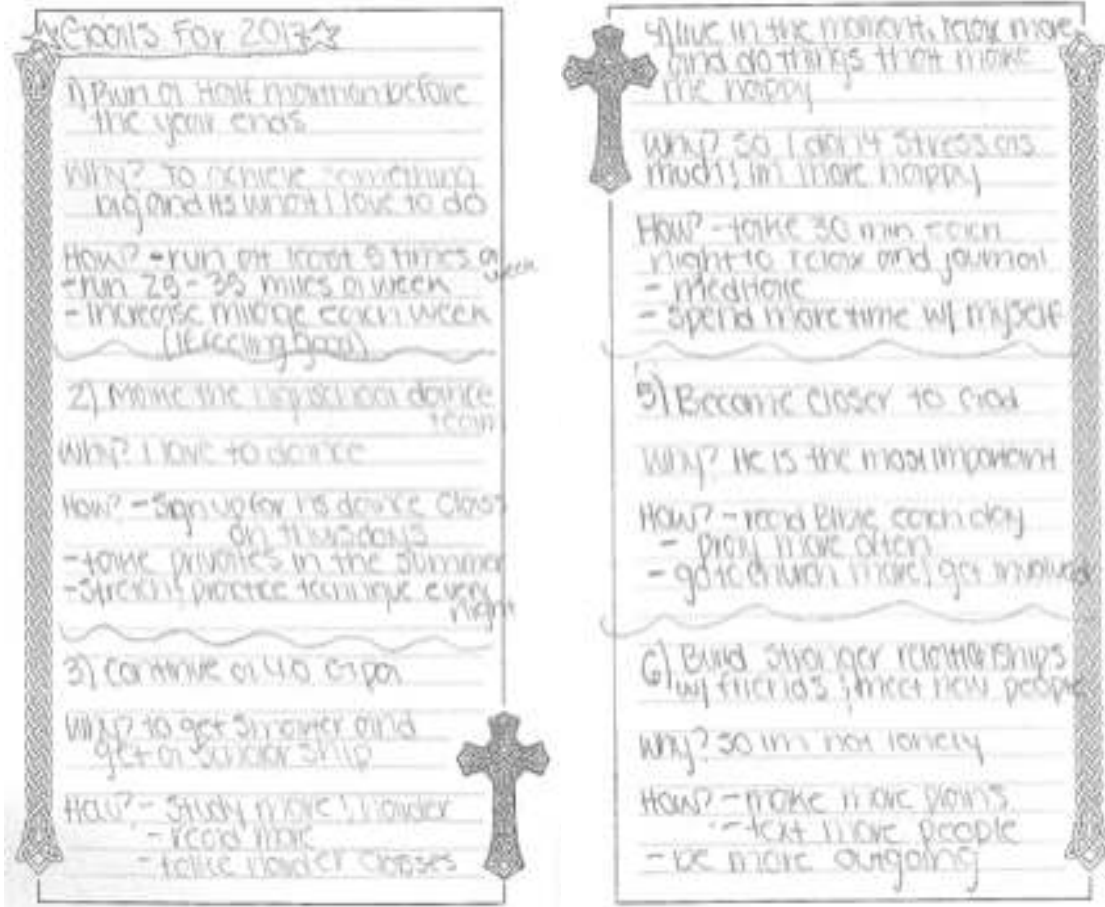 Goals For 2017
1) Run a Half marathon before
the year ends
Why? To achieve something
big and its what I love to do
How? - run at least 5 times a
week
- run 25 - 35 miles a week
- Increase milage each week
(if feeling good)
2) Make the highschool dance
team
Why? I love to dance
How? - Sign up for hs dance class
on thursdays
- take privates in the summer
- stretch & practice technique every
night
3) Continue a 4.0 Gpa
Why? to get smarter and
get a scholarship
How? - Study more & harder
- read more
- take harder classes
4) live in the moment, relax more
and do things that make
me happy
Why? So I don't stress as
much & im more happy
How? - take 30 min each
night to relax and journal
- meditate
- spend more time w/ myself
5) Become closer to God
Why? He is the most important
How? - read Bible each day
- pray more often
- go to church more & get involved
6) Build stronger relationships
w/ friends & meet new people
Why? so im not lonely
How? - make more plans
- text more people
- be more outgoing